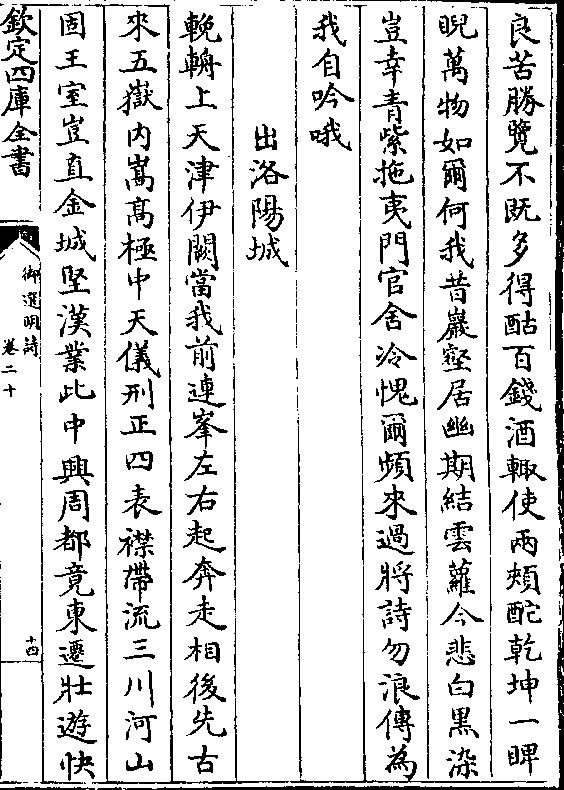 良苦勝覽不既多得酤百錢酒輙使兩頰酡乾坤一睥
睨萬物如爾何我昔巖壑居幽期結雲蘿今悲白黑染
豈幸青紫拖夷門官舍冷愧爾頻來過將詩勿浪傳為
我自吟哦
出洛陽城
輓輈上天津伊闕當我前連峯左右起奔走相後先古
來五嶽内嵩髙極中天儀刑正四表襟帶流三川河山
固王室豈直金城堅漢業此中興周都竟東遷壯遊快
欽定四庫全書
御選明詩
卷二十
十四